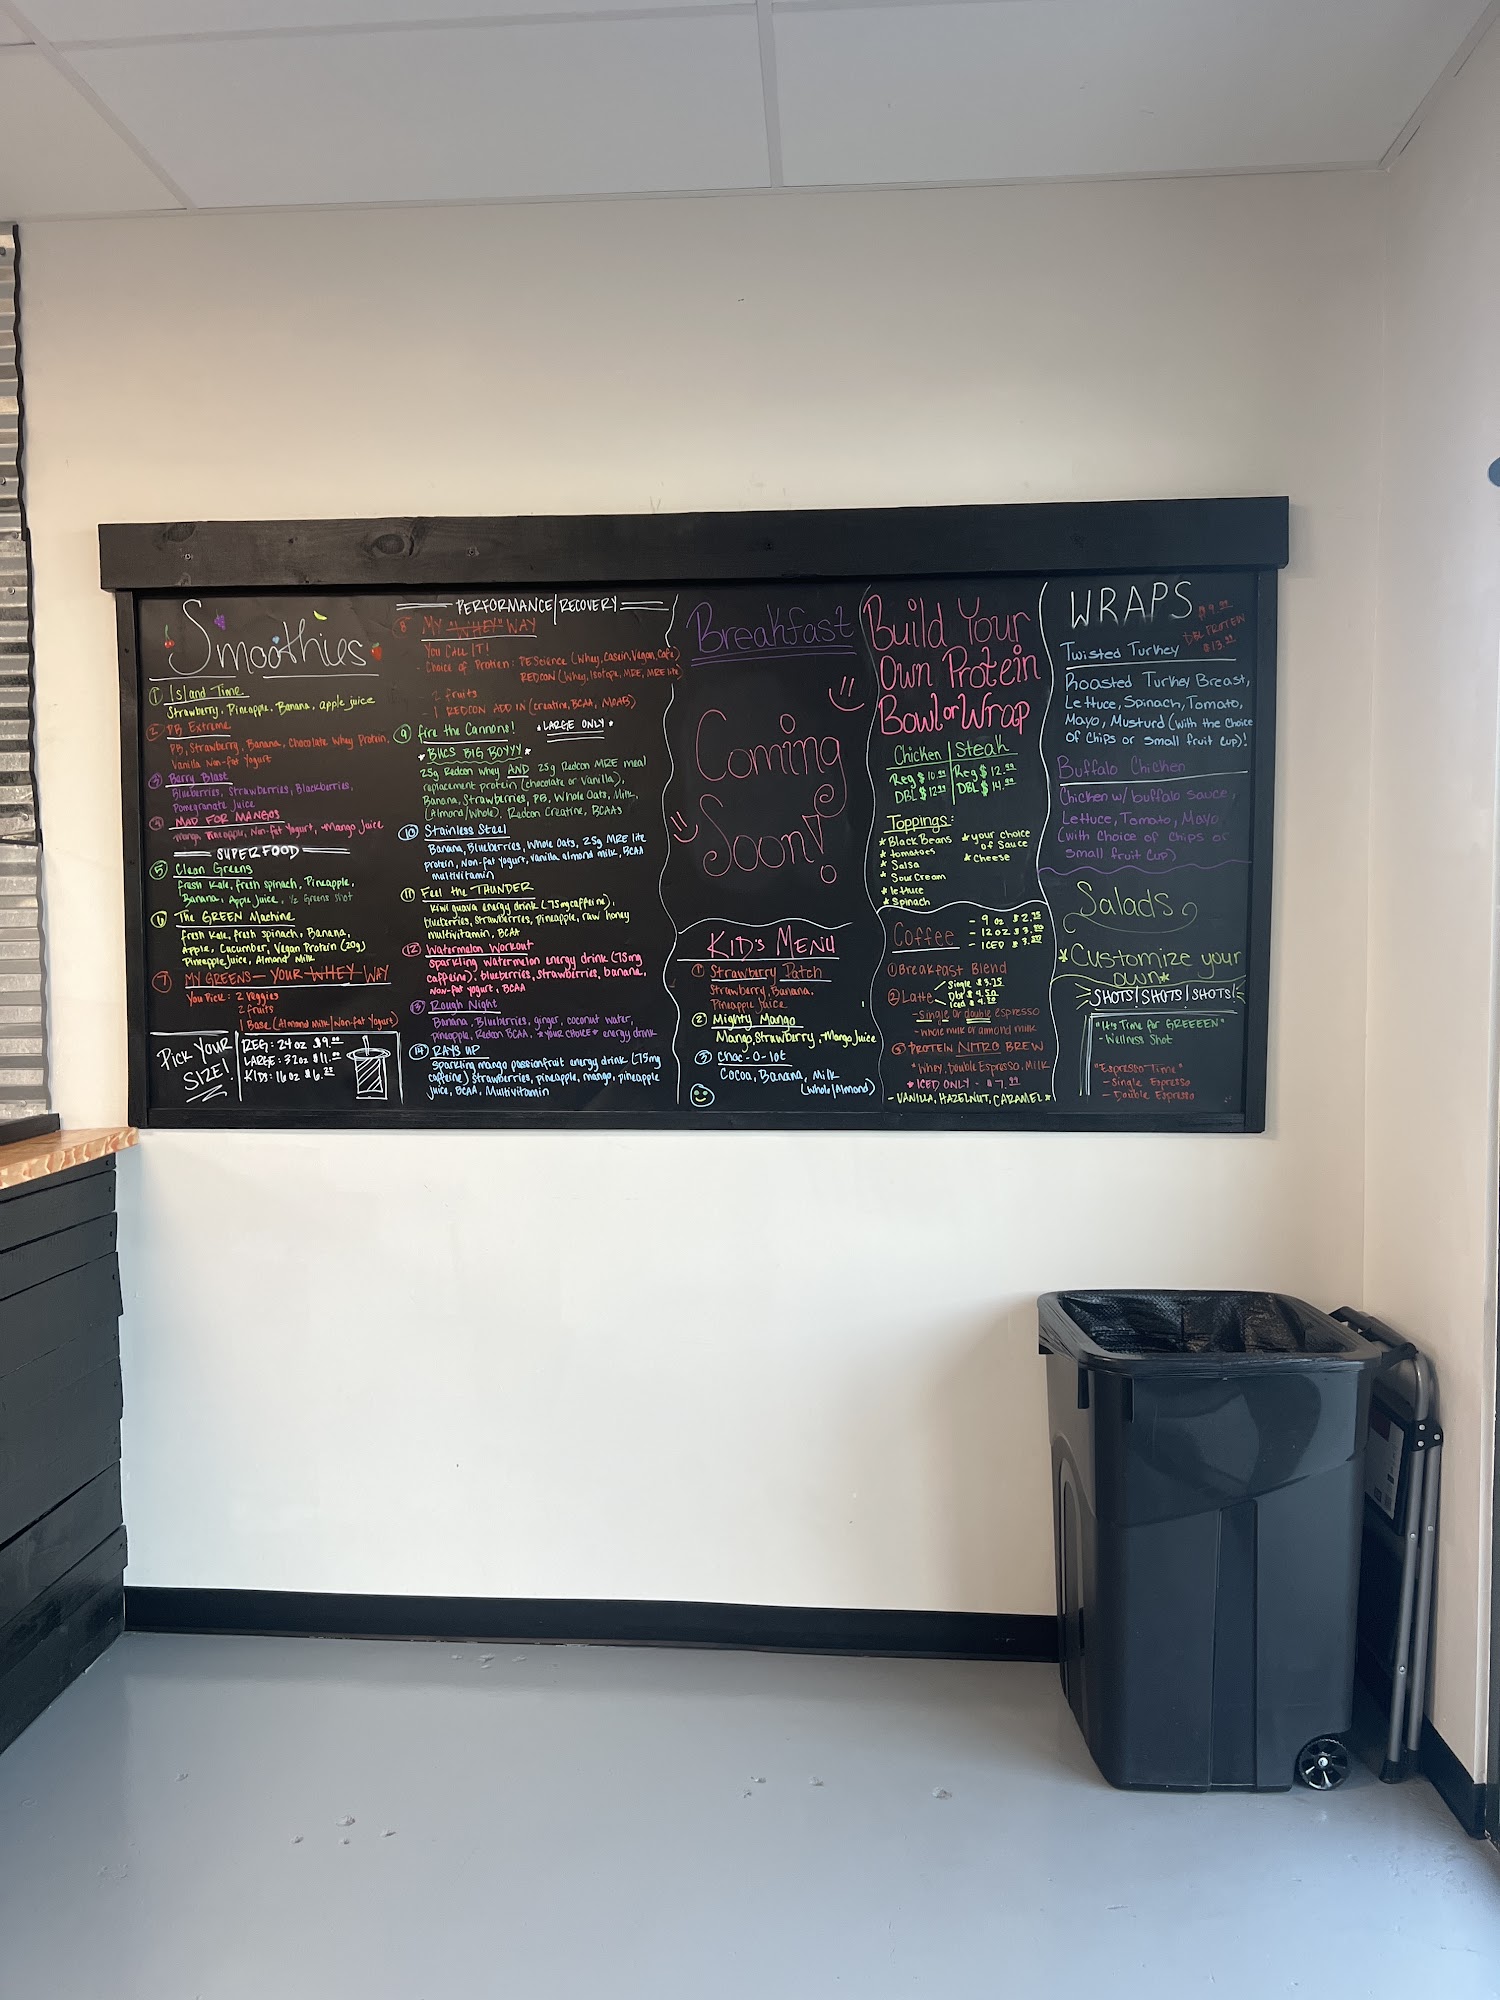 Smoothies
① Island Time
Strawberry, Pineapple, Banana, apple juice
② PB Extreme
PB, Strawberry, Banana, Chocolate Whey Protein,
Vanilla Non-fat Yogurt
③ Berry Blast
Blueberries, Strawberries, Blackberries,
Pomegranate Juice
④ MAD FOR MANGOS
mango, Pineapple, Non-fat Yogurt, Mango Juice
SUPERFOOD
⑤ Clean Greens
fresh Kale, fresh spinach, Pineapple,
Banana, Apple Juice, ½ Greens Shot
⑥ The GREEN Machine
fresh Kale, fresh spinach, Banana,
Apple, Cucumber, Vegan Protein (20g)
Pineapple Juice, Almond Milk
⑦ MY GREENS - YOUR WHEY WAY
You Pick: 2 Veggies
2 fruits
1 Base (Almond Milk/Non-fat Yogurt)
PICK YOUR
SIZE!
REG: 24oz $9.00
LARGE: 32oz $11.00
KIDS: 16oz $6.25
PERFORMANCE/RECOVERY
8 MY "WHEY" WAY
YOU CALL IT!
- Choice of Protien: PEScience (Whey, Casein, Vegan, Cafe)
REDCON (Whey, Isotope, MRE, MRE lite)
- 2 fruits
- 1 REDCON ADD IN (creatine, BCAA, MOAB)
⑨ fire the Cannons! *LARGE ONLY*
*BUCS BIG BOYYY*
25g Redcon Whey AND 25g Redcon MRE meal
replacement protein (chocolate or Vanilla),
Banana, Strawberries, PB, Whole Oats, Milk,
(Almond/Whole), Redcon Creatine, BCAAs
⑩ Stainless Steel
Banana, Blueberries, Whole Oats, 25g MRE lite
protein, Non-fat yogurt, vanilla almond milk, BCAA
multivitamin
⑪ Feel the THUNDER
Kiwi guava energy drink (75mg caffeine),
blueberries, strawberries, pineapple, raw honey
multivitamin, BCAA
⑫ Watermelon Workout
Sparkling watermelon energy drink (75mg
caffeine), blueberries, strawberries, banana,
Non-fat yogurt, BCAA
⑬ Rough Night
Banana, Blueberries, ginger, coconut water,
pineapple, Redcon BCAA, *YOUR CHOICE* energy drink
⑭ RAYS UP
Sparkling mango passionfruit energy drink (75mg
caffeine) strawberries, pineapple, mango, pineapple
juice, BCAA, Multivitamin
Breakfast
Coming
Soon!
KID'S MENU
① Strawberry Patch
Strawberry, Banana,
Pineapple Juice
② Mighty Mango
Mango, Strawberry, Mango Juice
③ Choc-O-lot
Cocoa, Banana, Milk
(Whole/Almond)
Build Your
Own Protein
Bowl or Wrap
Chicken | Steak
Reg $10.99 Reg $12.99
DBL $12.99 DBL $14.99
Toppings:
*Black Beans *your choice
*tomatoes of Sauce
*Salsa *Cheese
*Sour Cream
*lettuce
*Spinach
Coffee - 9 oz $2.75
- 12 oz $3.50
- ICED $3.50
① Breakfast Blend
② Latte Single $3.75
Dbl $4.50
Iced $4.50
- Single or double espresso
- whole milk or almond milk
③ PROTEIN NITRO BREW
*Whey, Double Espresso, Milk
*ICED ONLY - $7.99
- VANILLA, HAZELNUT, CARAMEL*
WRAPS $9.99
DBL PROTEIN
$13.99
Twisted Turkey
Roasted Turkey Breast,
Lettuce, Spinach, Tomato,
Mayo, Musturd (with the Choice
of Chips or small fruit cup)!
Buffalo Chicken
Chicken w/ buffalo sauce,
Lettuce, Tomato, Mayo
(with choice of chips or
small fruit cup)
Salads
*Customize your
own*
SHOTS! SHOTS! SHOTS!
"It's Time for GREEEEN"
- Wellness Shot
"Espresso-Time"
- Single Espresso
- Double Espresso